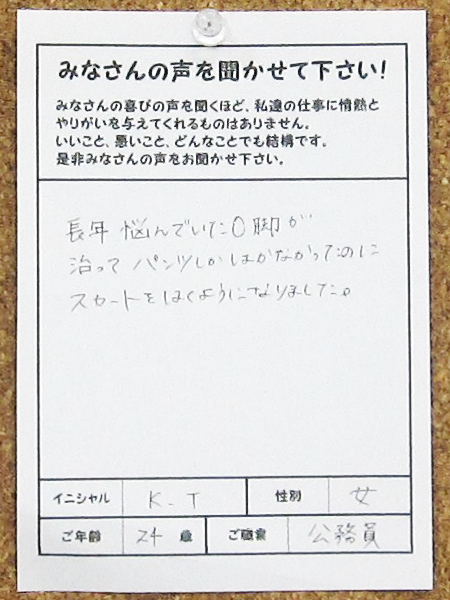 みなさんの声を聞かせて下さい!
みなさんの喜びの声を聞くほど、私達の仕事に情熱と
やりがいを与えてくれるものはありません。
いいこと、悪いこと、どんなことでも結構です。
是非みなさんの声をお聞かせ下さい。
長年 悩んでいたO脚が
治って パンツしかはかなかったのに
スカートをはくようになりました。
イニシャル K-T 性別 女
ご年齢 24 歳 ご職業 公務員